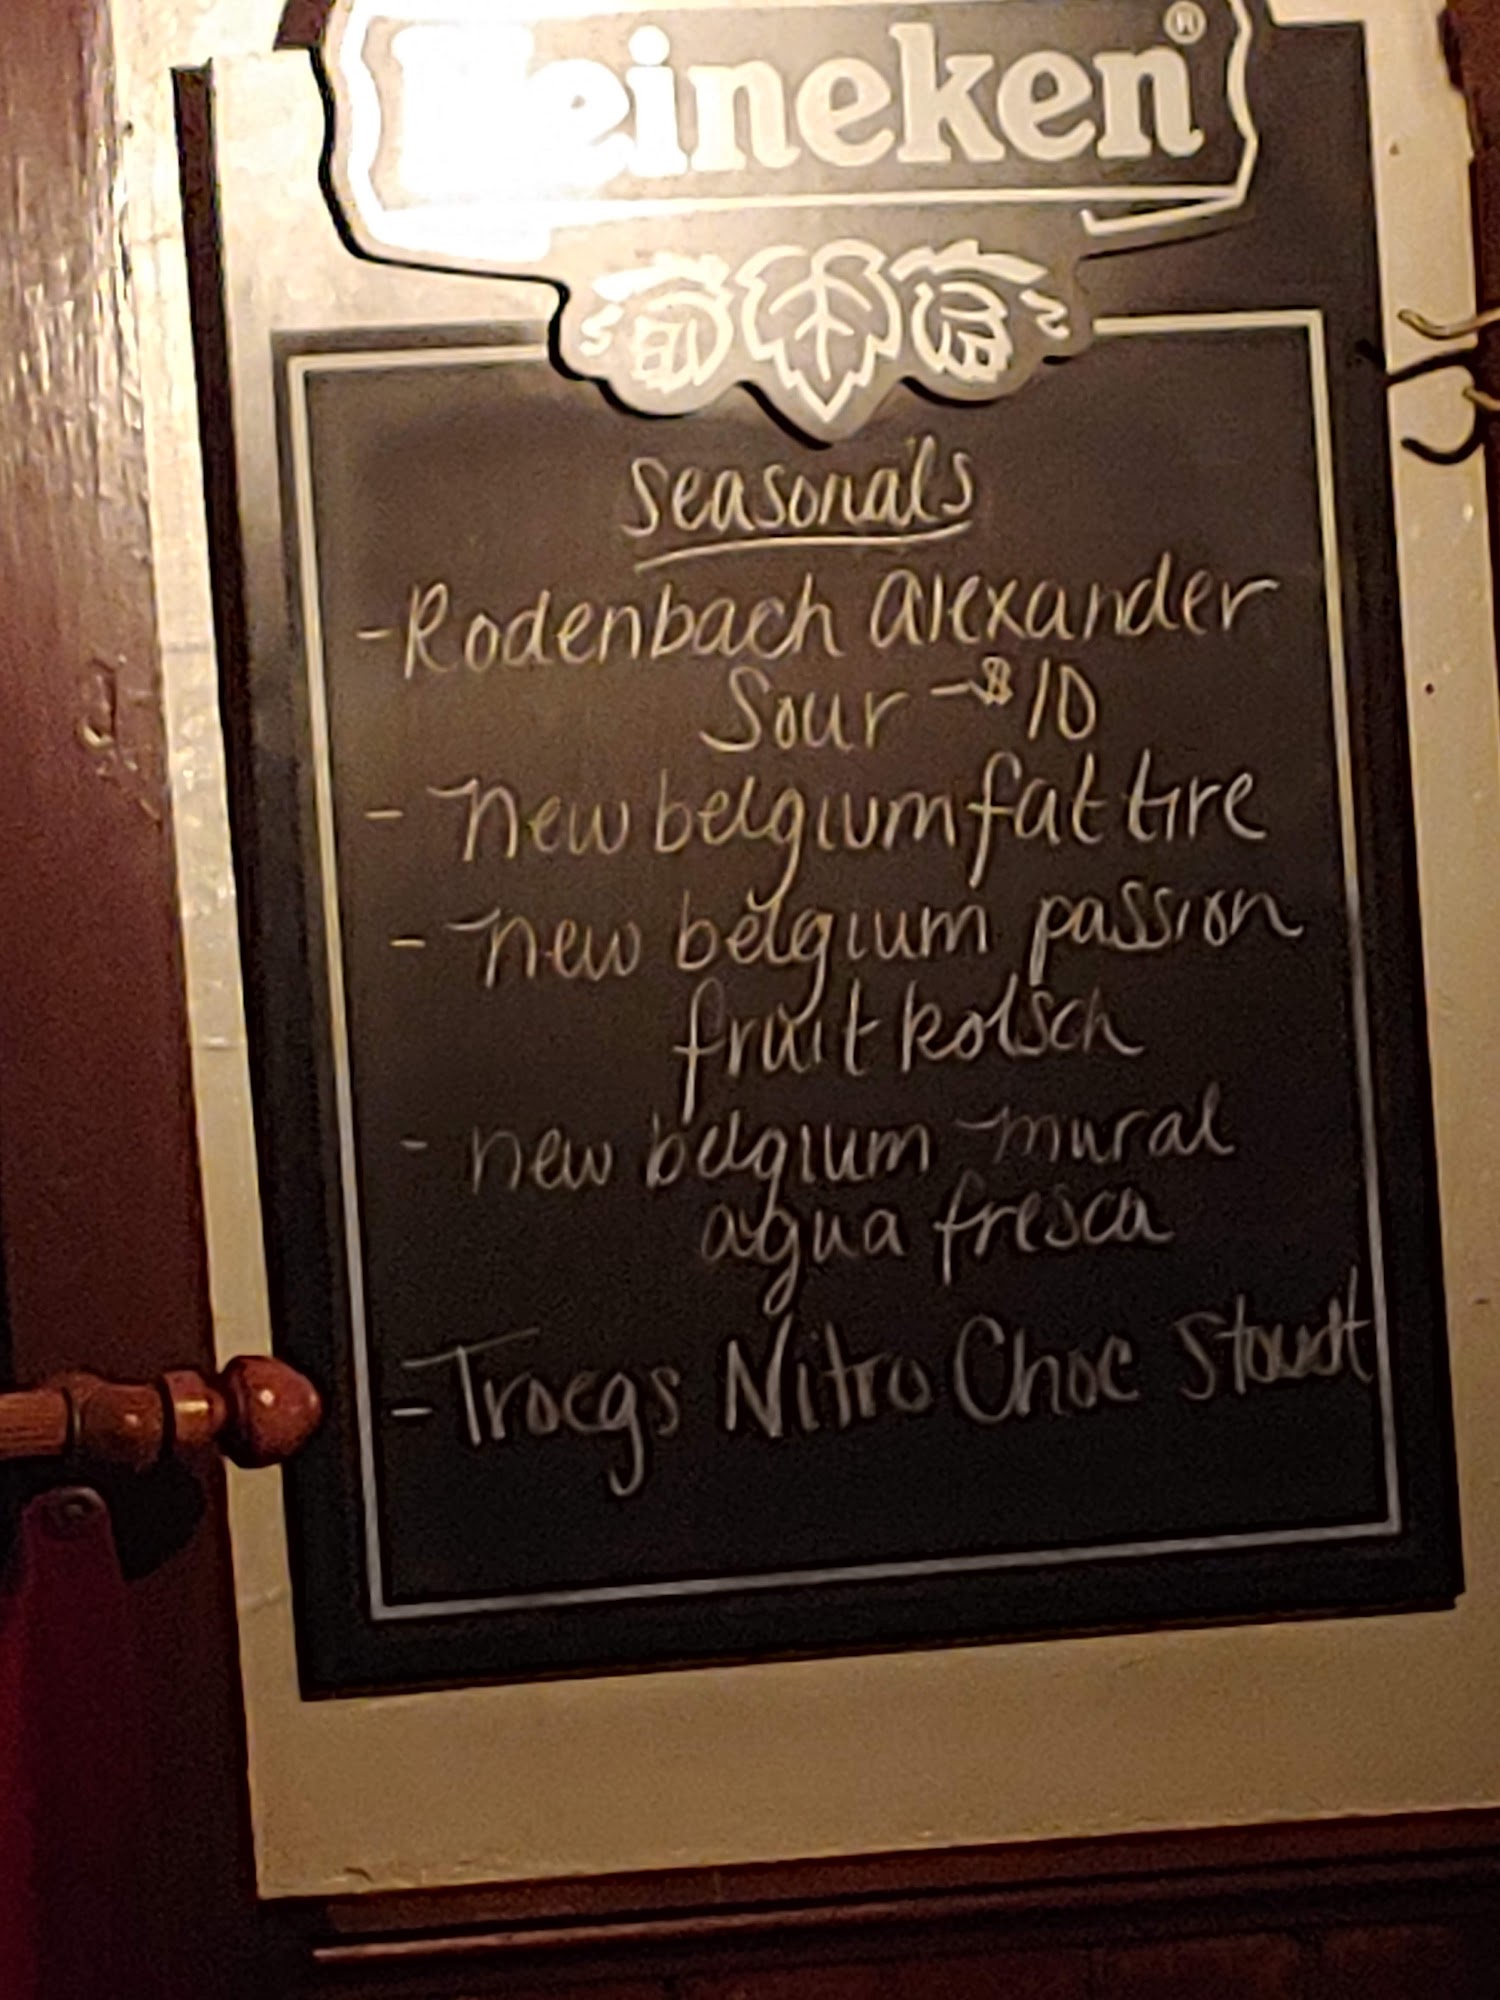 Heineken®
seasonals
- Rodenbach Alexander
Sour - $10
- New belgium fat tire
- New belgium passion
fruit kolsch
- new belgium mural
agua fresca
- Troegs Nitro Choc Stoudt